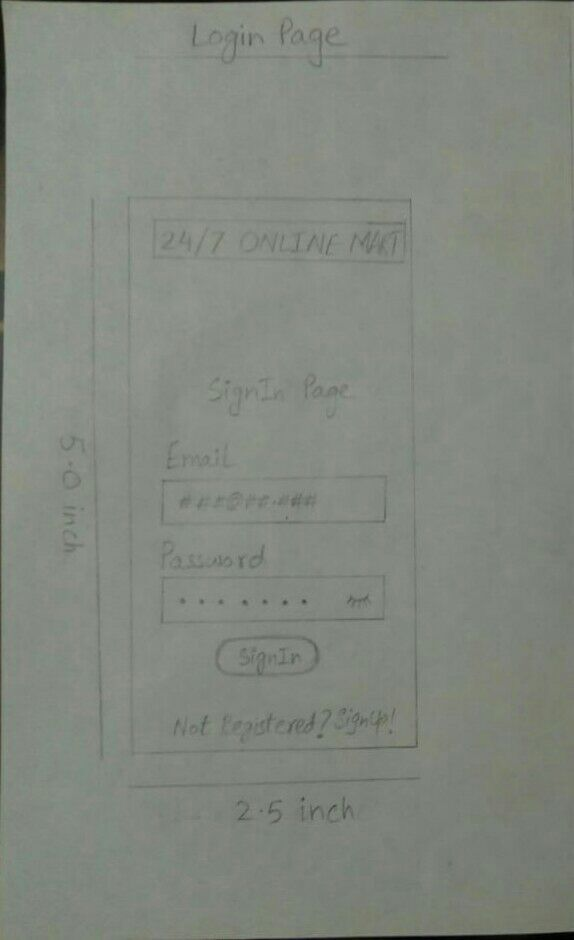 Login Page
24/7 ONLINE MART
SignIn Page
Email
###@##.###
Password
SignIn
Not Registered? SignUp!
5.0 inch
2.5 inch